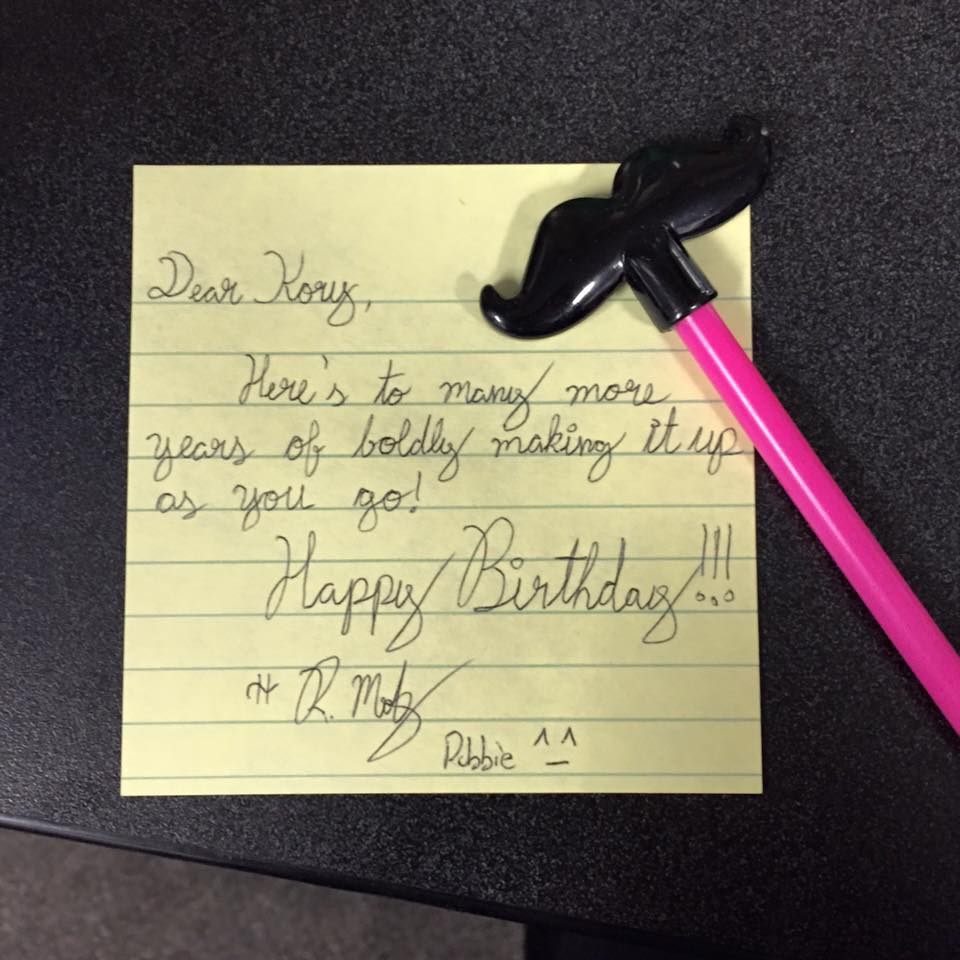 Dear Kory,
Here's to many more
years of boldly making it up
as you go!
Happy Birthday!!!
R.
^_^